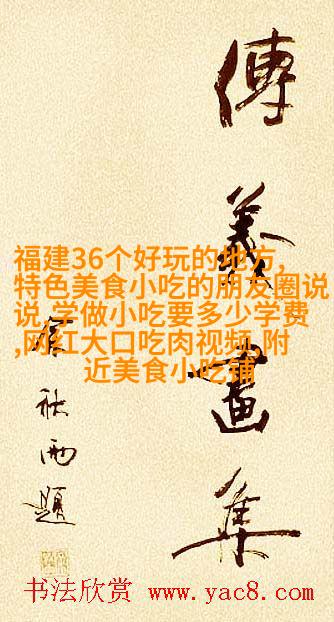 畫集
題
福建36个好玩的地方,
特色美食小吃的朋友圈说
说,学做小吃要多少学费
,网红大口吃肉视频,附
近美食小吃铺
书法欣赏 www.yac8.com